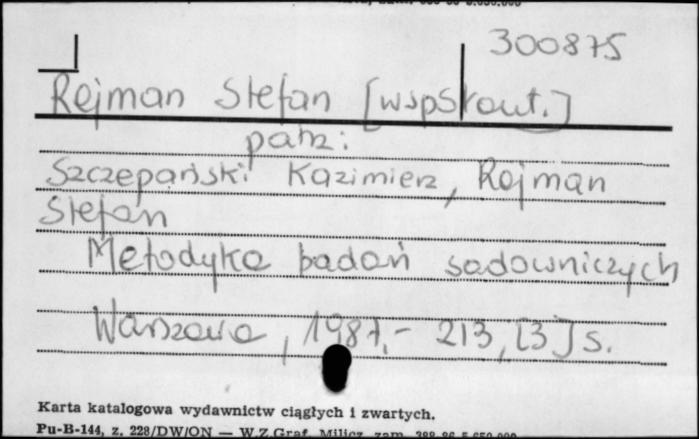 300875
Rejman Stefan [wspołaut.]
patrz:
Szczepański Kazimierz, Rejman
Stefan
Metodyka badań sadowniczych
Warszawa, 1987.- 213,[3] s.
Karta katalogowa wydawnictw ciągłych i zwartych.
Pu-B-144, z. 228/DW/ON — W.Z.Graf. Milicz, zam.